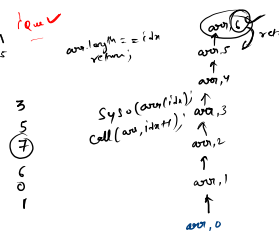 1 Que ✓
5
arr.length == idx
return;
3
5
7
6
0
1
Syso(arr[idx);
Call(arr, idx+1);
arr, 6
ret
arr, 5
arr, 4
arr, 3
arr, 2
arr, 1
arr, 0